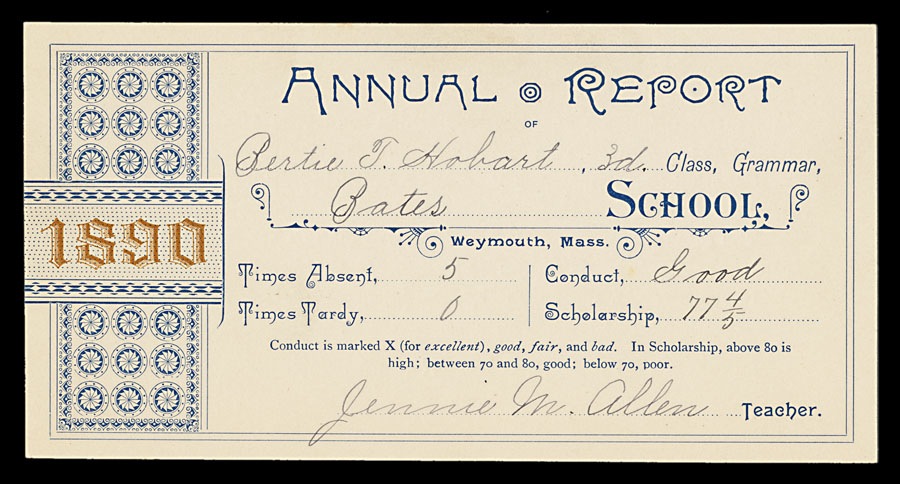 ANNUAL REPORT
OF
Bertie T. Hobart, 3d. Class, Grammar,
Bates SCHOOL,
Weymouth, Mass.
1890
Times Absent, 5 Conduct, Good
Times Tardy, 0 Scholarship, 77 4/5
Conduct is marked X (for excellent), good, fair, and bad. In Scholarship, above 80 is
high; between 70 and 80, good; below 70, poor.
Jennie M. Allen Teacher.